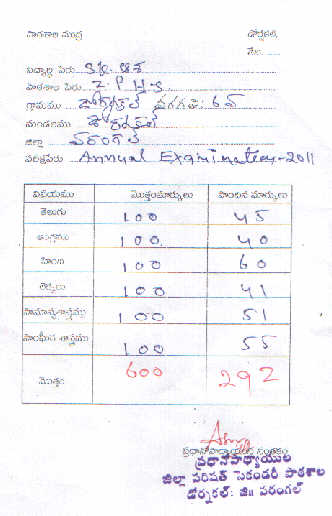 పాఠశాల ముద్ర
డోర్నకల్,
తేది.
విద్యార్థి పేరు SK. ఆశ
పాఠశాల పేరు Z.P.H.S
గ్రామము డోర్నకల్ తరగతి: 6వ
మండలము డోర్నకల్
జిల్లా వరంగల్
పరీక్షపేరు Annual Examination-2011
విషయము మొత్తంమార్కులు పొందిన మార్కులు
తెలుగు 100 45
ఆంగ్లము 100 40
హిందీ 100 60
లెక్కలు 100 41
సామాన్యశాస్త్రము 100 51
సాంఘీక శాస్త్రము 100 55
మొత్తం 600 292
ప్రధానోపాధ్యాయుని సంతకం
ప్రధానోపాధ్యాయులు
జిల్లా పరిషత్ సెకండరీ పాఠశాల
డోర్నకల్: జిః వరంగల్